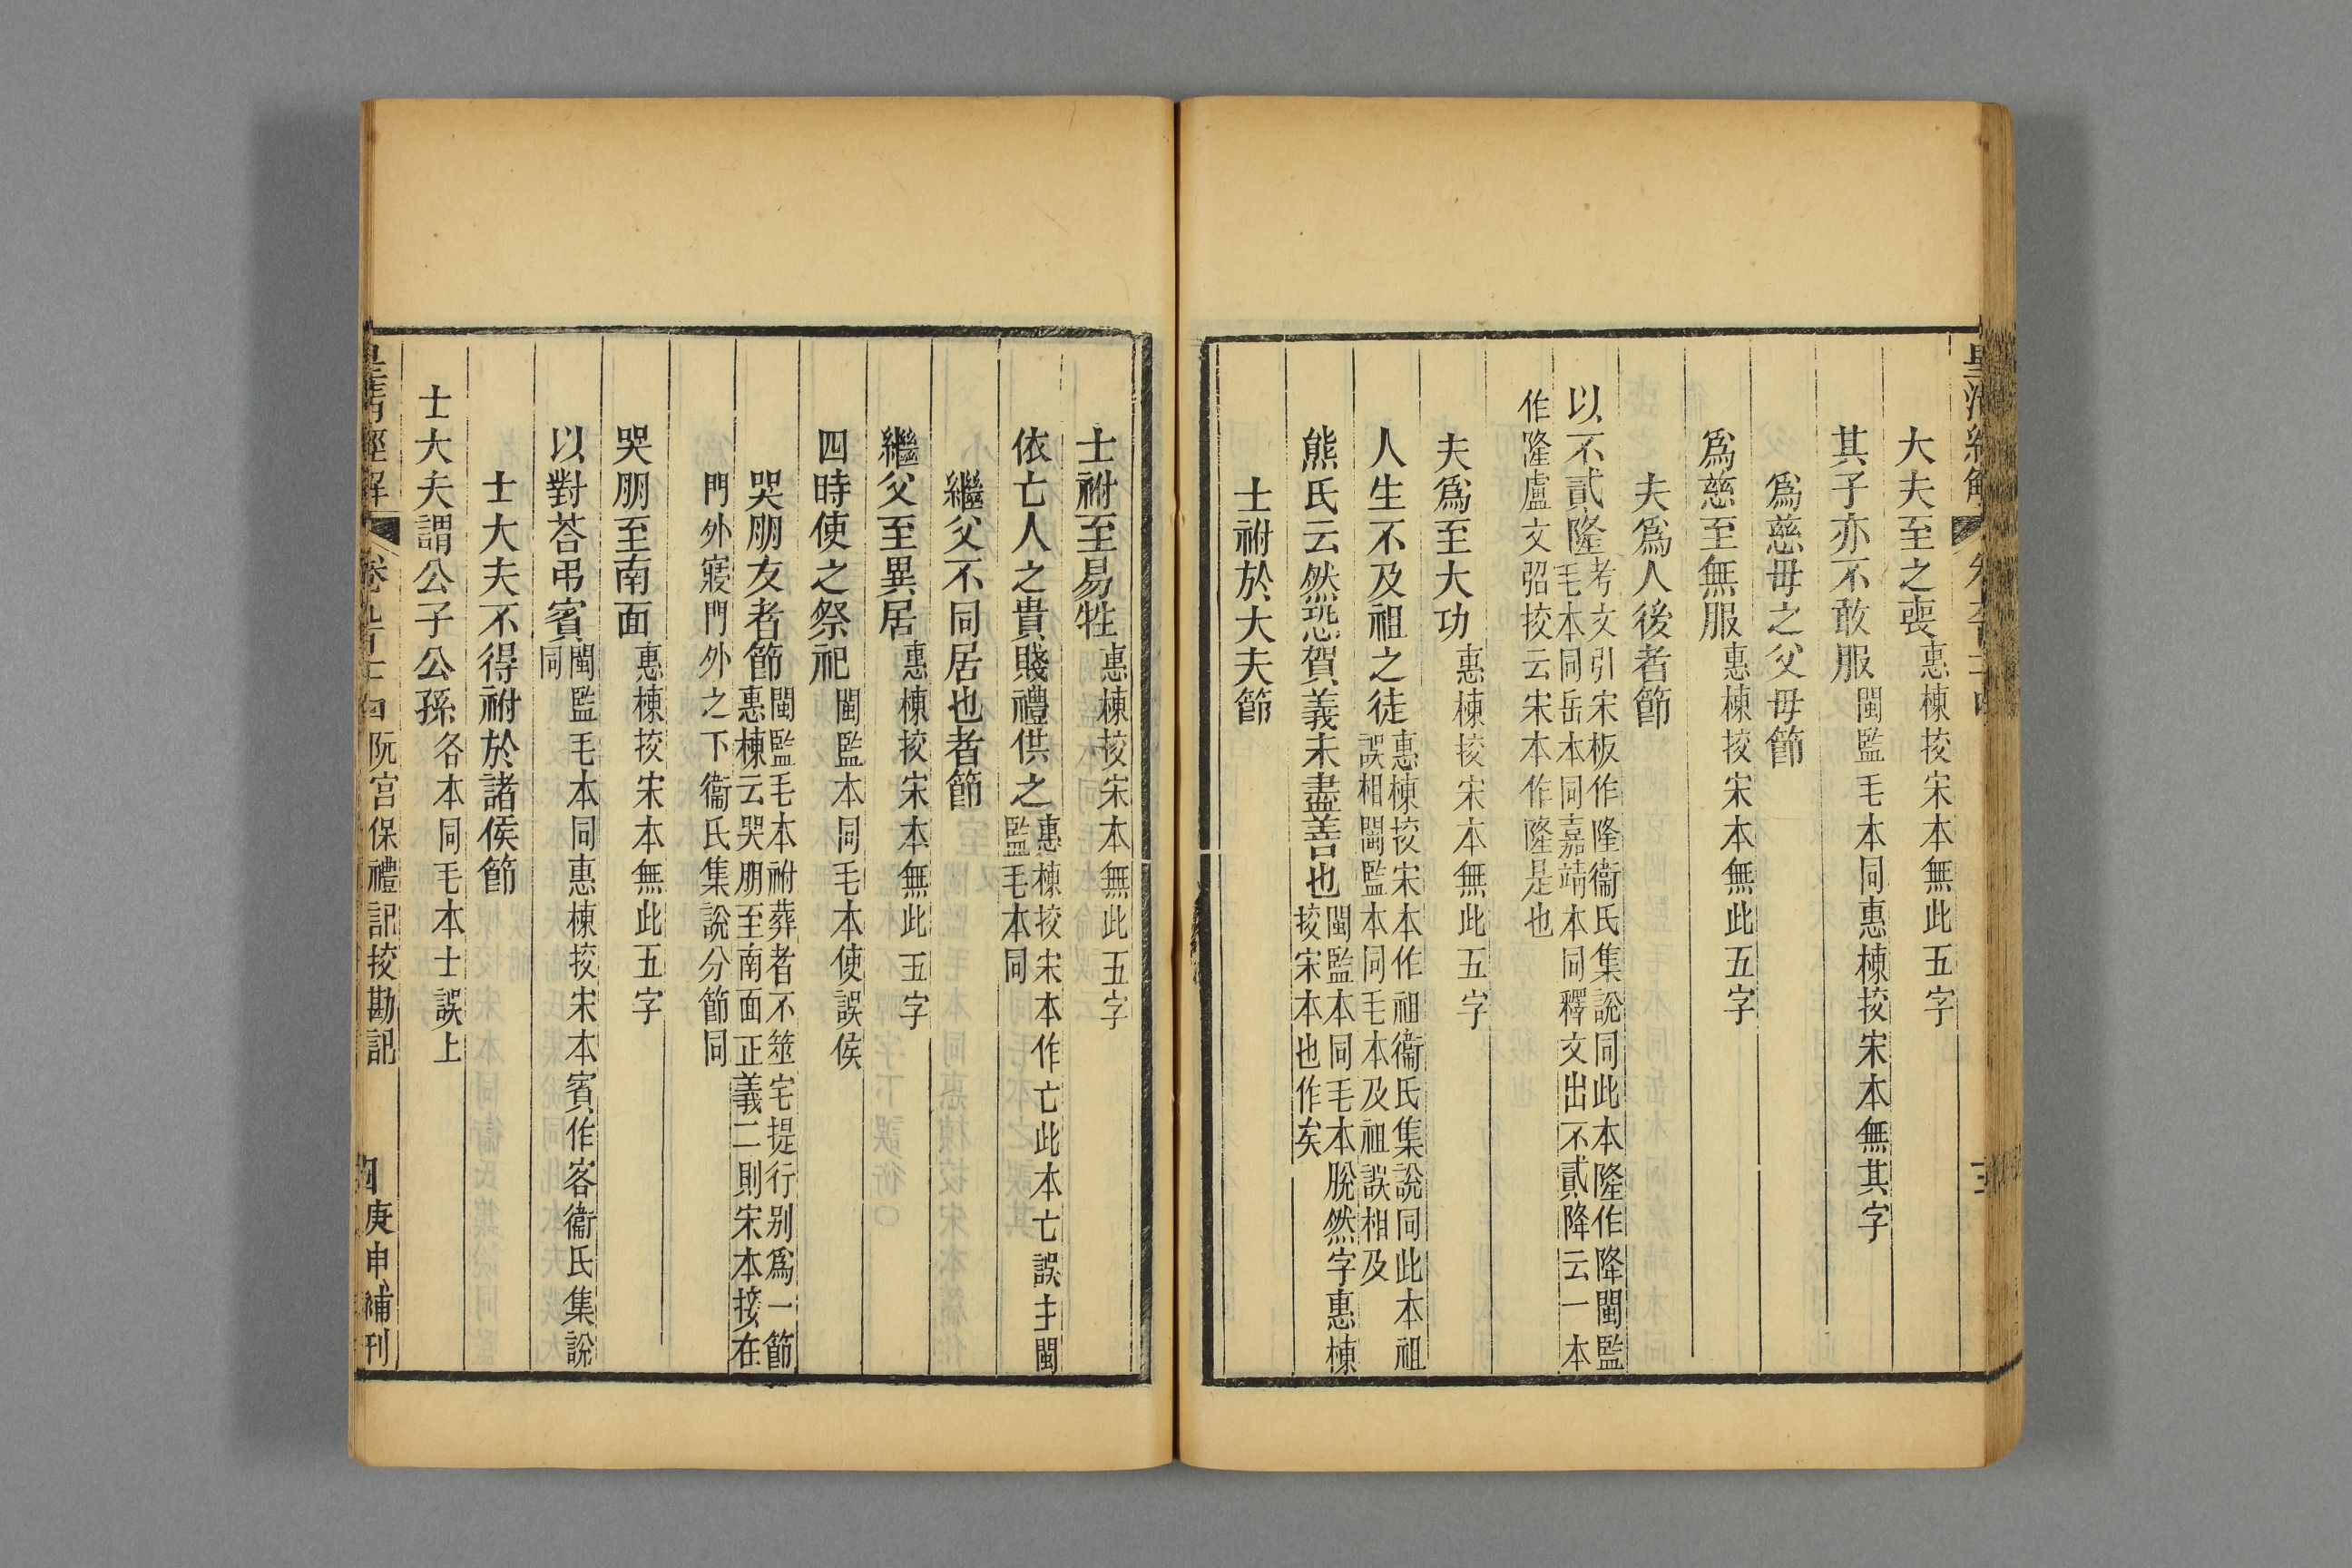 大夫至之喪惠棟挍宋本無此五字
其子亦不敢服閩監毛本同惠棟挍宋本無其字
爲慈母之父母節
爲慈至無服惠棟挍宋本無此五字
夫爲人後者節
以不貳隆考文引宋板作隆衞氏集說同此本隆作降閩監
毛本同岳本同嘉靖本同釋文出不貳降云一本
作隆盧文弨挍云宋本作隆是也
夫爲至大功惠棟挍宋本無此五字
人生不及祖之徒惠棟挍宋本作祖衞氏集說同此本祖
誤相閩監本同毛本及祖誤相及
熊氏云然恐賀義未盡善也閩監本同毛本脫然字惠棟
挍宋本也作矣
士祔於大夫節
士祔至易牲惠棟挍宋本無此五字
依亡人之貴賤禮供之惠棟挍宋本作亡此本亡誤主閩
監毛本同
繼父不同居也者節
繼父至異居惠棟挍宋本無此五字
四時使之祭祀閩監本同毛本使誤侯
哭朋友者節閩監毛本祔葬者不筮宅提行别爲一節
惠棟云哭朋至南面正義二則宋本接在
門外寢門外之下衞氏集說分節同
哭朋至南面惠棟挍宋本無此五字
以對荅弔賓閩監毛本同惠棟挍宋本賓作客衞氏集說
同
士大夫不得祔於諸侯節
士大夫謂公子公孫各本同毛本士誤上
皇淸經解 阮宮保禮記挍勘記 庚申補刊